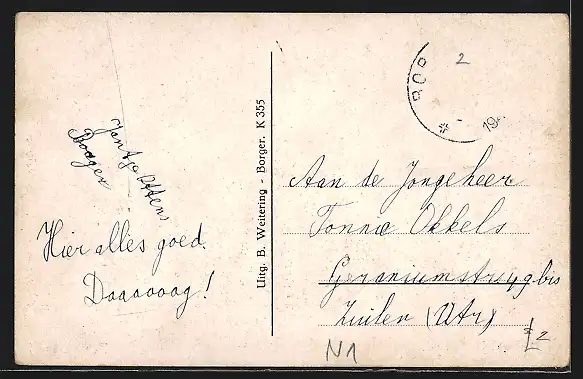 Jantje Ottens
Borger
Hier alles goed.
Daaaooag!
Uitg. B. Weitering - Borger. K 355
BOR
19
2
Aan de Jongeheer
Tonnie Okkels
Geraniumstr 49 bis
Zuilen (Utr)
N1
2